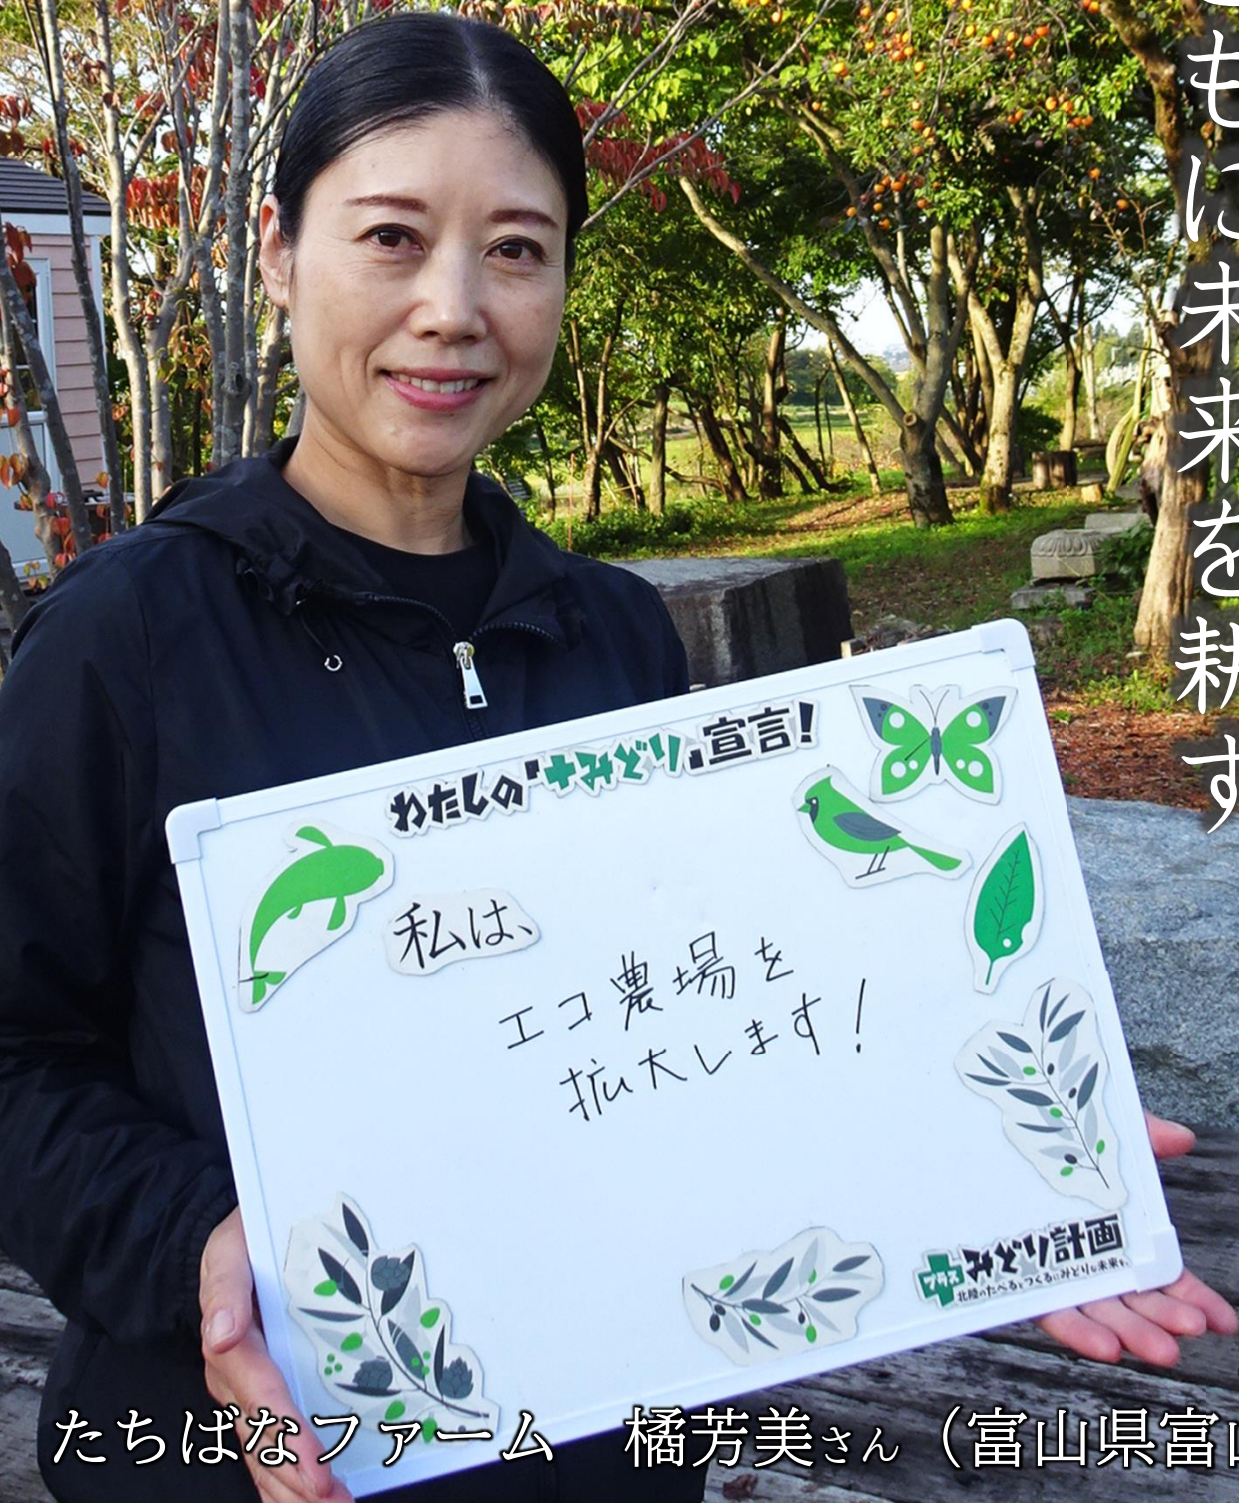 もに未来を耕す
わたしの「+みどり」宣言！
私は、
エコ農場を
拡大します！
プラス みどり計画
北陸のたべるとつくるにみどりな未来を。
たちばなファーム　橘芳美さん（富山県富山